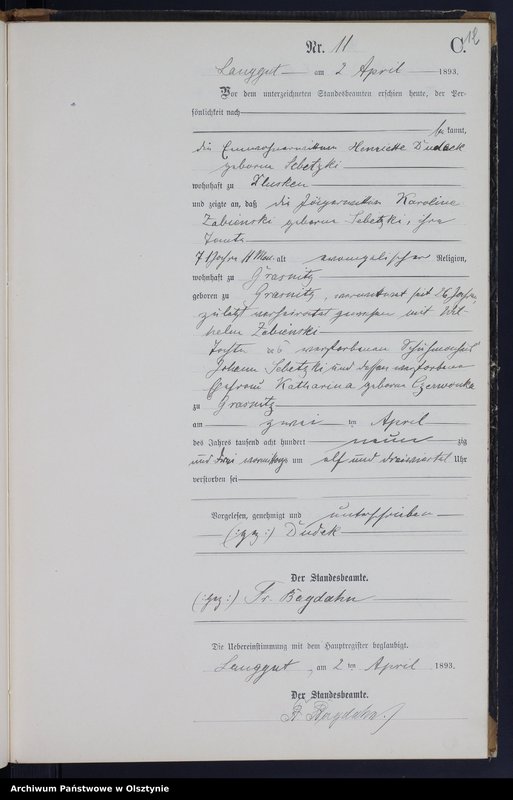 12
Nr. 11 C.
Langgut am 2 April 1893.
Vor dem unterzeichneten Standesbeamten erschien heute, der Per-
sönlichkeit nach
be kannt,
die Henriette Dudeck
geborene Sebetzki
wohnhaft zu Klusken
und zeigte an, daß die Karoline
Zabienski geborene Sebetzki, ihre
Tante
7 Jahre 11 Mon. alt evangelischer Religion,
wohnhaft zu Grasnitz
geboren zu Grasnitz, verwittwet seit 26 Jahre,
zuletzt verheirathet gewesen mit Wil-
helm Zabienski
Tochter des verstorbenen
Johann Sebetzki und dessen verstorbene
Ehefrau Katharina geborene Czerwonka
zu Grasnitz
am zwei ten April
des Jahres tausend acht hundert neun zig
und drei vormittags um elf und dreiviertel Uhr
verstorben sei
Vorgelesen, genehmigt und unterschrieben
(:gez:) Dudek
Der Standesbeamte.
(:gez:) Fr. Bagdahn
Die Uebereinstimmung mit dem Hauptregister beglaubigt.
Langgut, am 2 ten April 1893.
Der Standesbeamte.
Bagdahn.
Archiwum Państwowe w Olsztynie